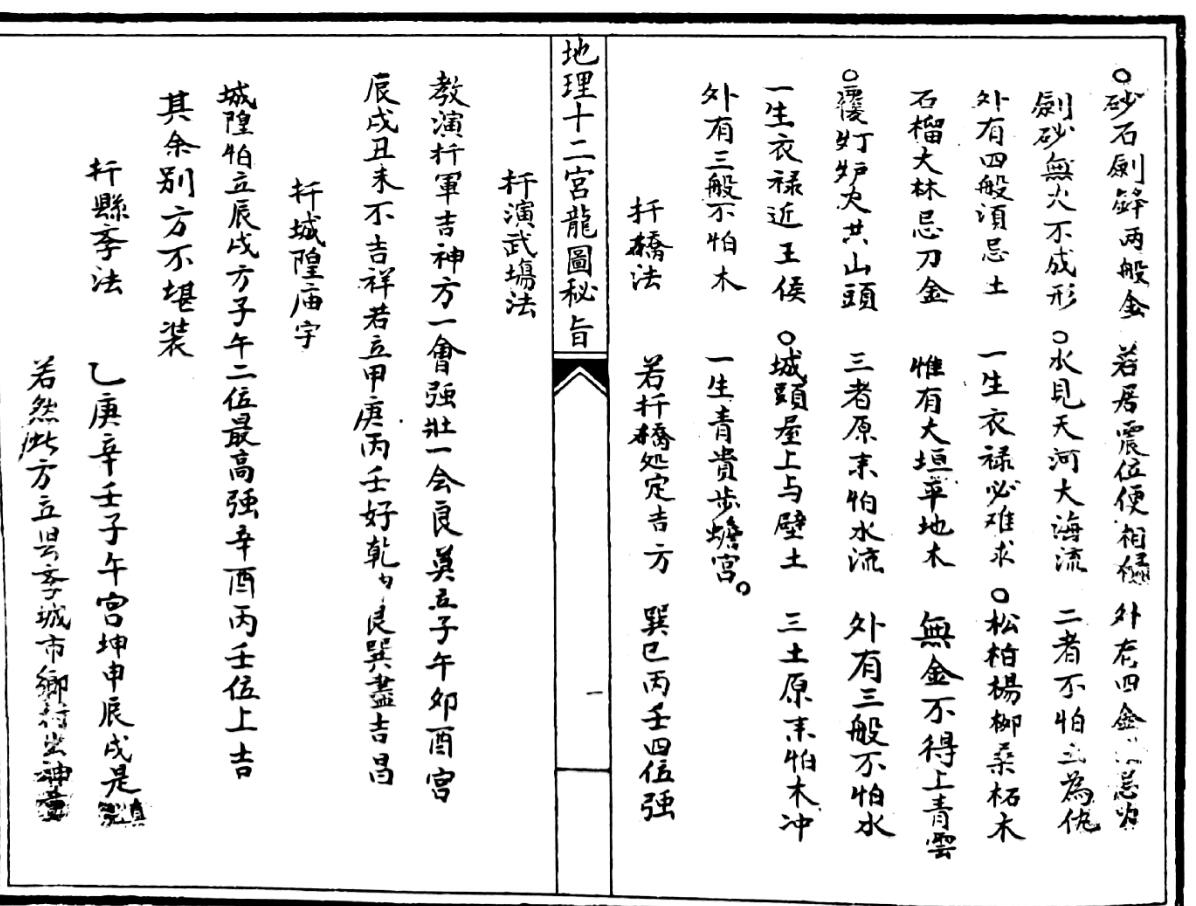 ○砂石劍鋒两般金 若居震位便相 外有四金忌火
劍砂無火不成形 ○水見天河大海流 二者不怕土為仇
外有四般須忌土 一生衣禄必难求 ○松柏楊柳桑柘木
石榴大林忌刀金 惟有大垣平地木 無金不得上青雲
○覆灯炉火共山頭 三者原来怕水流 外有三般不怕水
一生衣禄近王侯 ○城頭屋上与壁土 三土原来怕木冲
外有三般不怕木 一生青貴步蟾宮○
扦橋法 若扦橋処定吉方 巽巳丙壬四位强
地理十二宮龍圖秘旨
一
扦演武塲法
教演扦軍吉神方一會强壯一会良莫立子午卯酉宮
辰戌丑未不吉祥若立甲庚丙壬好乾艮巽盡吉昌
扦城隍庙宇
城隍怕立辰戌方子午二位最高强辛酉丙壬位上吉
其余别方不堪装
扦縣斈法 乙庚辛壬子午宮坤申辰戌是真
若然此方立县斈城市鄉村出神童